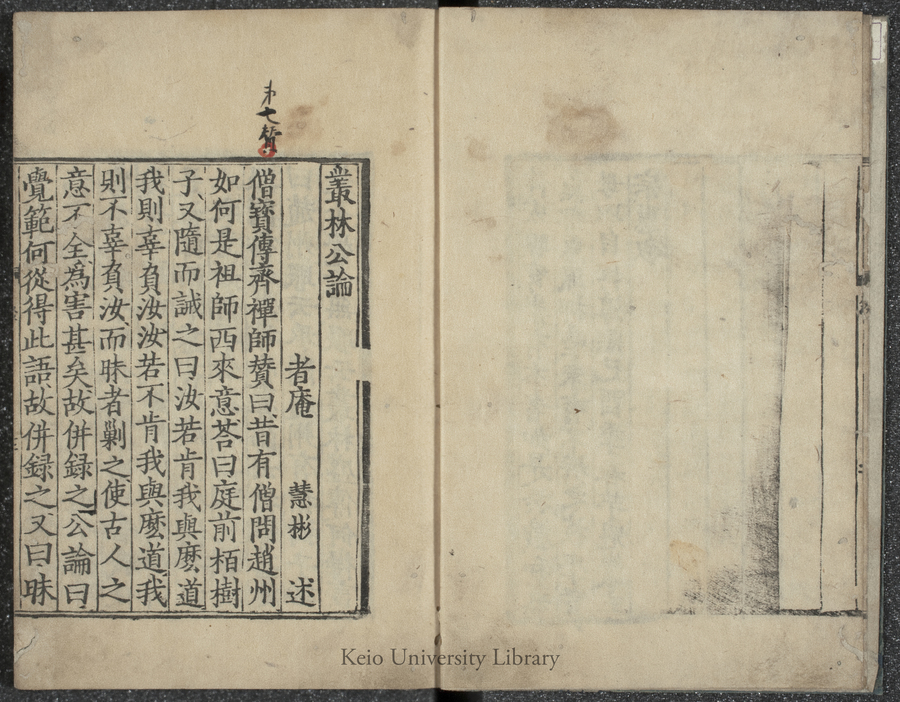 叢林公論
者庵 慧彬 述
僧寶傳齊禪師賛曰昔有僧問趙州
如何是祖師西來意荅曰庭前栢樹
子又隨而誡之曰汝若肯我與麽道
我則辜負汝汝若不肯我與麽道我
則不辜負汝而昧者剿之使古人之
意不全為害甚矣故併録之公論曰
覺範何從得此語故併録之又曰昧
Keio University Library